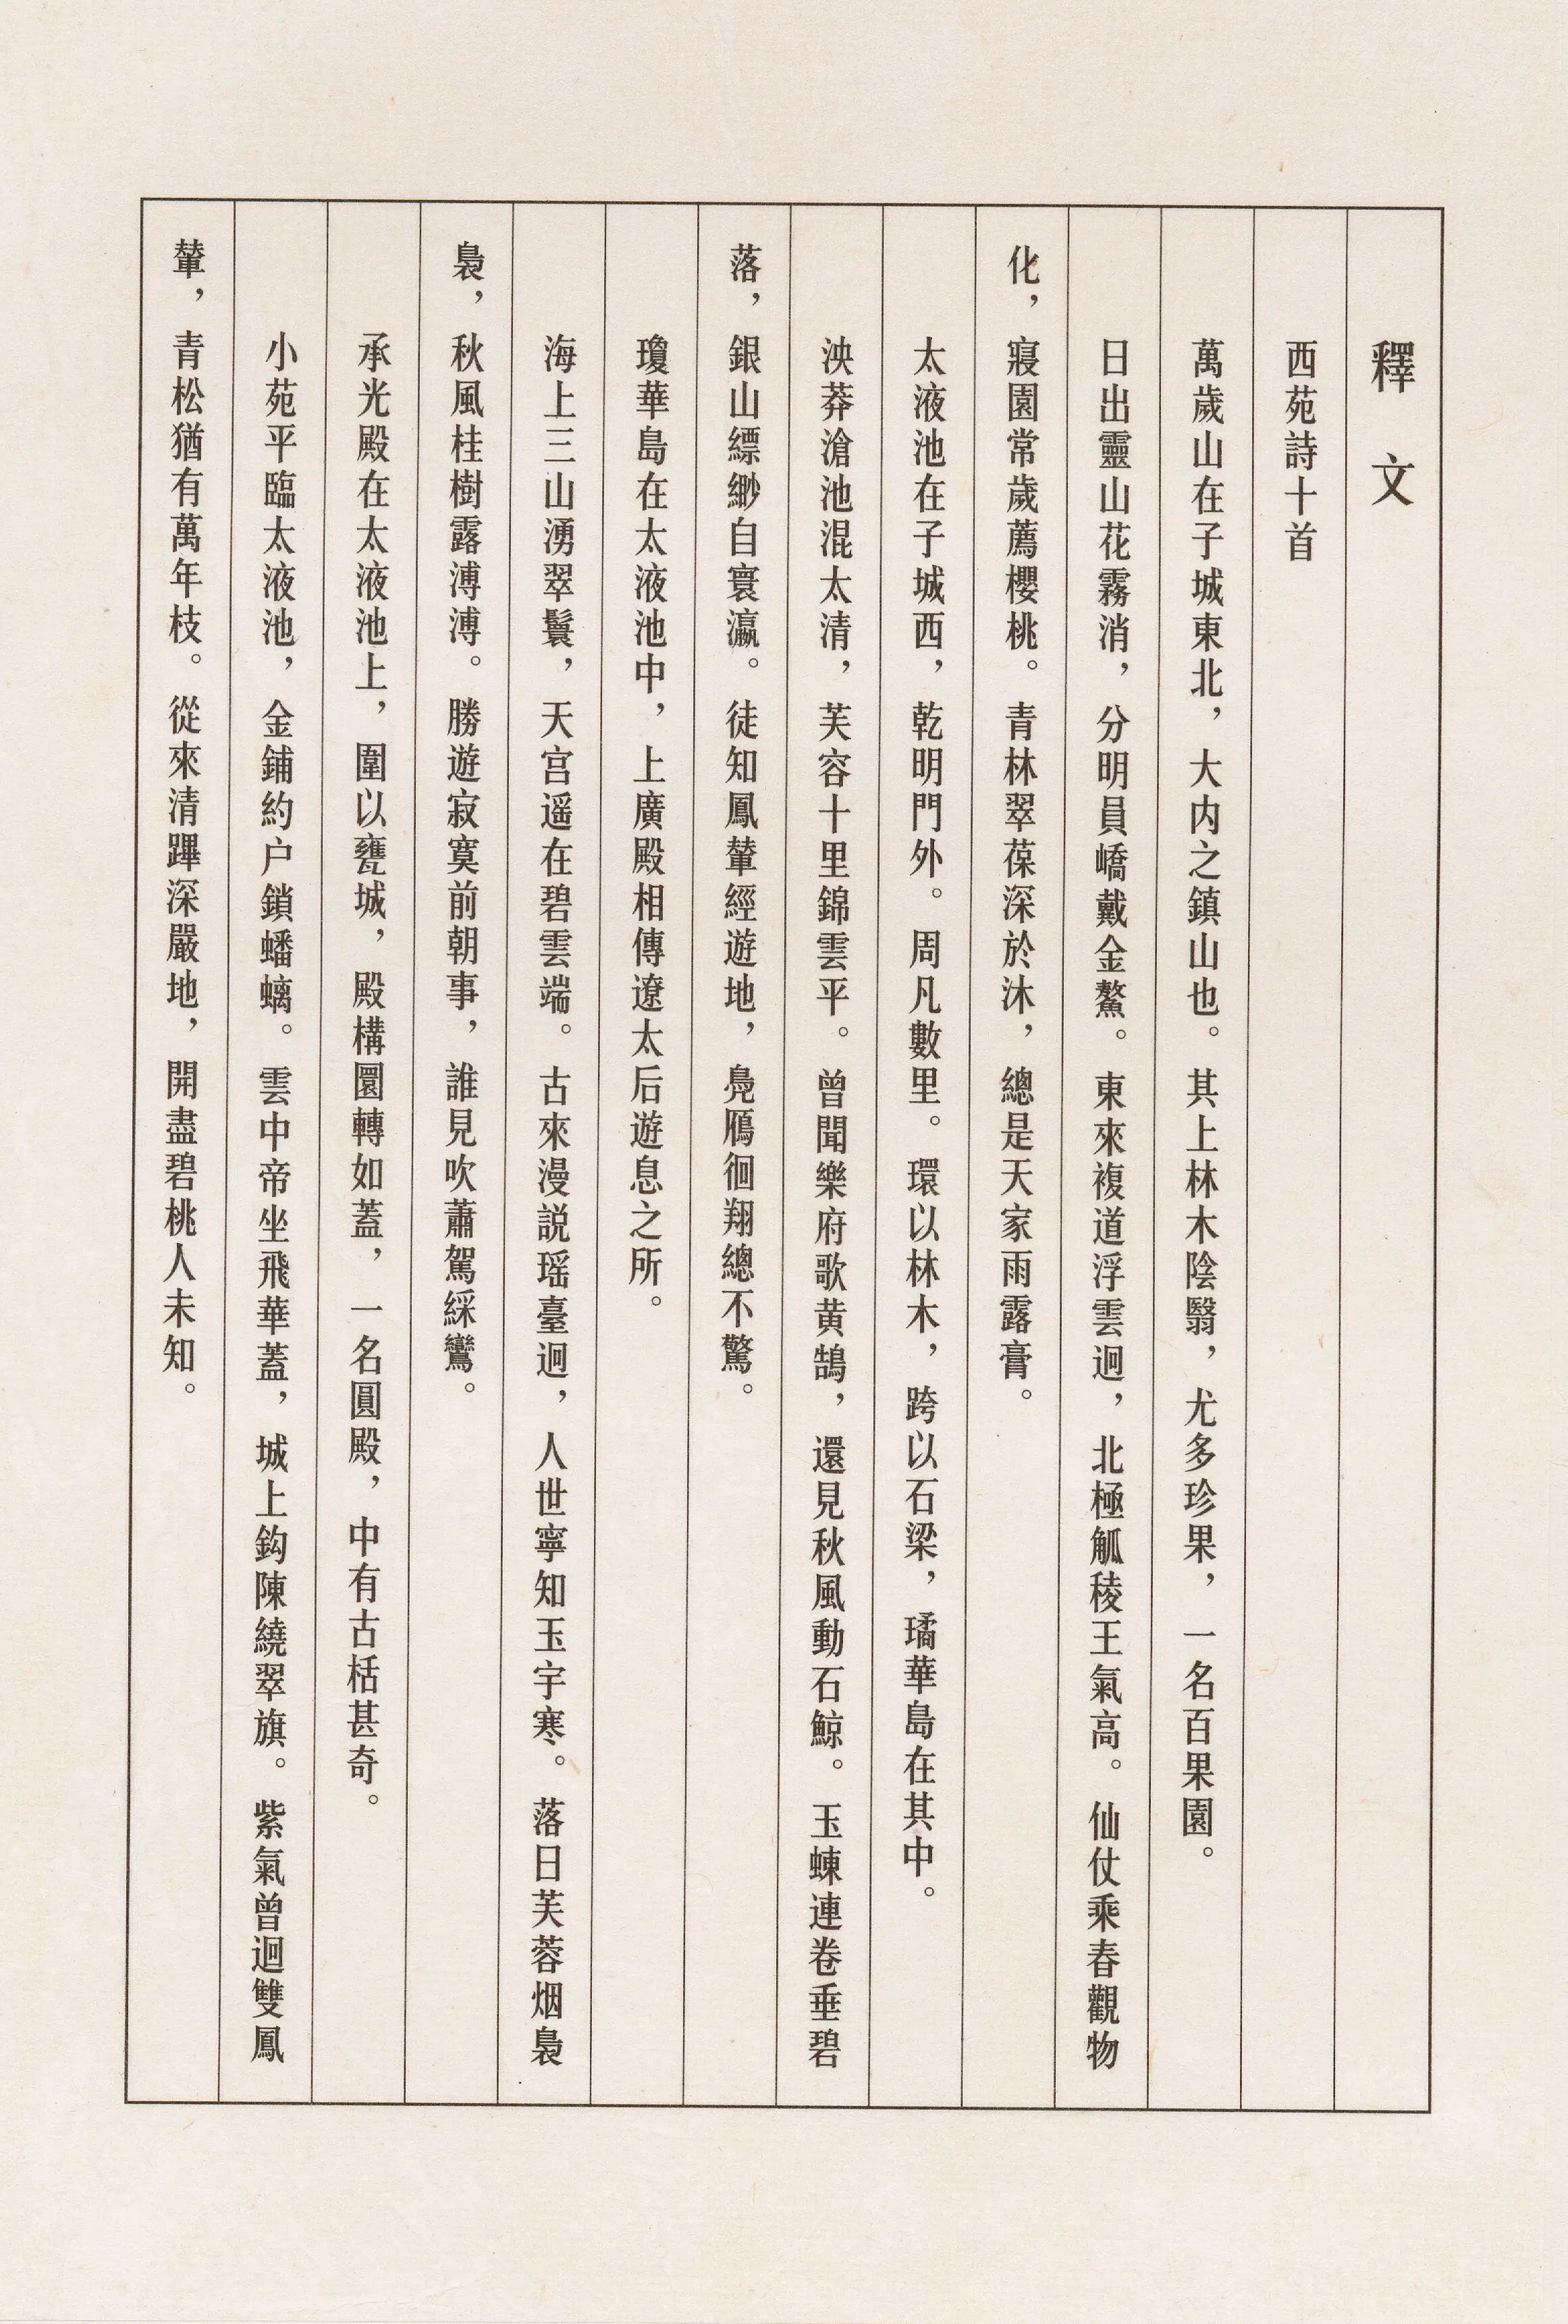 釋文
西苑詩十首
萬歲山在子城東北，大内之鎮山也。其上林木陰翳，尤多珍果，一名百果園。
日出靈山花霧消，分明員嶠戴金鰲。東來複道浮雲迴，北極觚稜王氣高。仙仗乘春觀物
化，寢園常歲薦櫻桃。青林翠葆深於沐，總是天家雨露膏。
太液池在子城西，乾明門外。周凡數里。環以林木，跨以石梁，璚華島在其中。
泱莽滄池混太清，芙容十里錦雲平。曾聞樂府歌黄鵠，還見秋風動石鯨。玉蝀連卷垂碧
落，銀山縹緲自寰瀛。徒知鳳輦經遊地，凫鴈徊翔總不驚。
瓊華島在太液池中，上廣殿相傳遼太后遊息之所。
海上三山湧翠鬟，天宫遥在碧雲端。古來漫説瑶臺迥，人世寧知玉宇寒。落日芙蓉烟裊
裊，秋風桂樹露溥溥。勝遊寂寞前朝事，誰見吹蕭駕綵鸞。
承光殿在太液池上，圍以甕城，殿構圜轉如蓋，一名圓殿，中有古栝甚奇。
小苑平臨太液池，金鋪約户鎖蟠螭。雲中帝坐飛華蓋，城上鈎陳繞翠旗。紫氣曾迴雙鳳
輦，青松猶有萬年枝。從來清蹕深嚴地，開盡碧桃人未知。